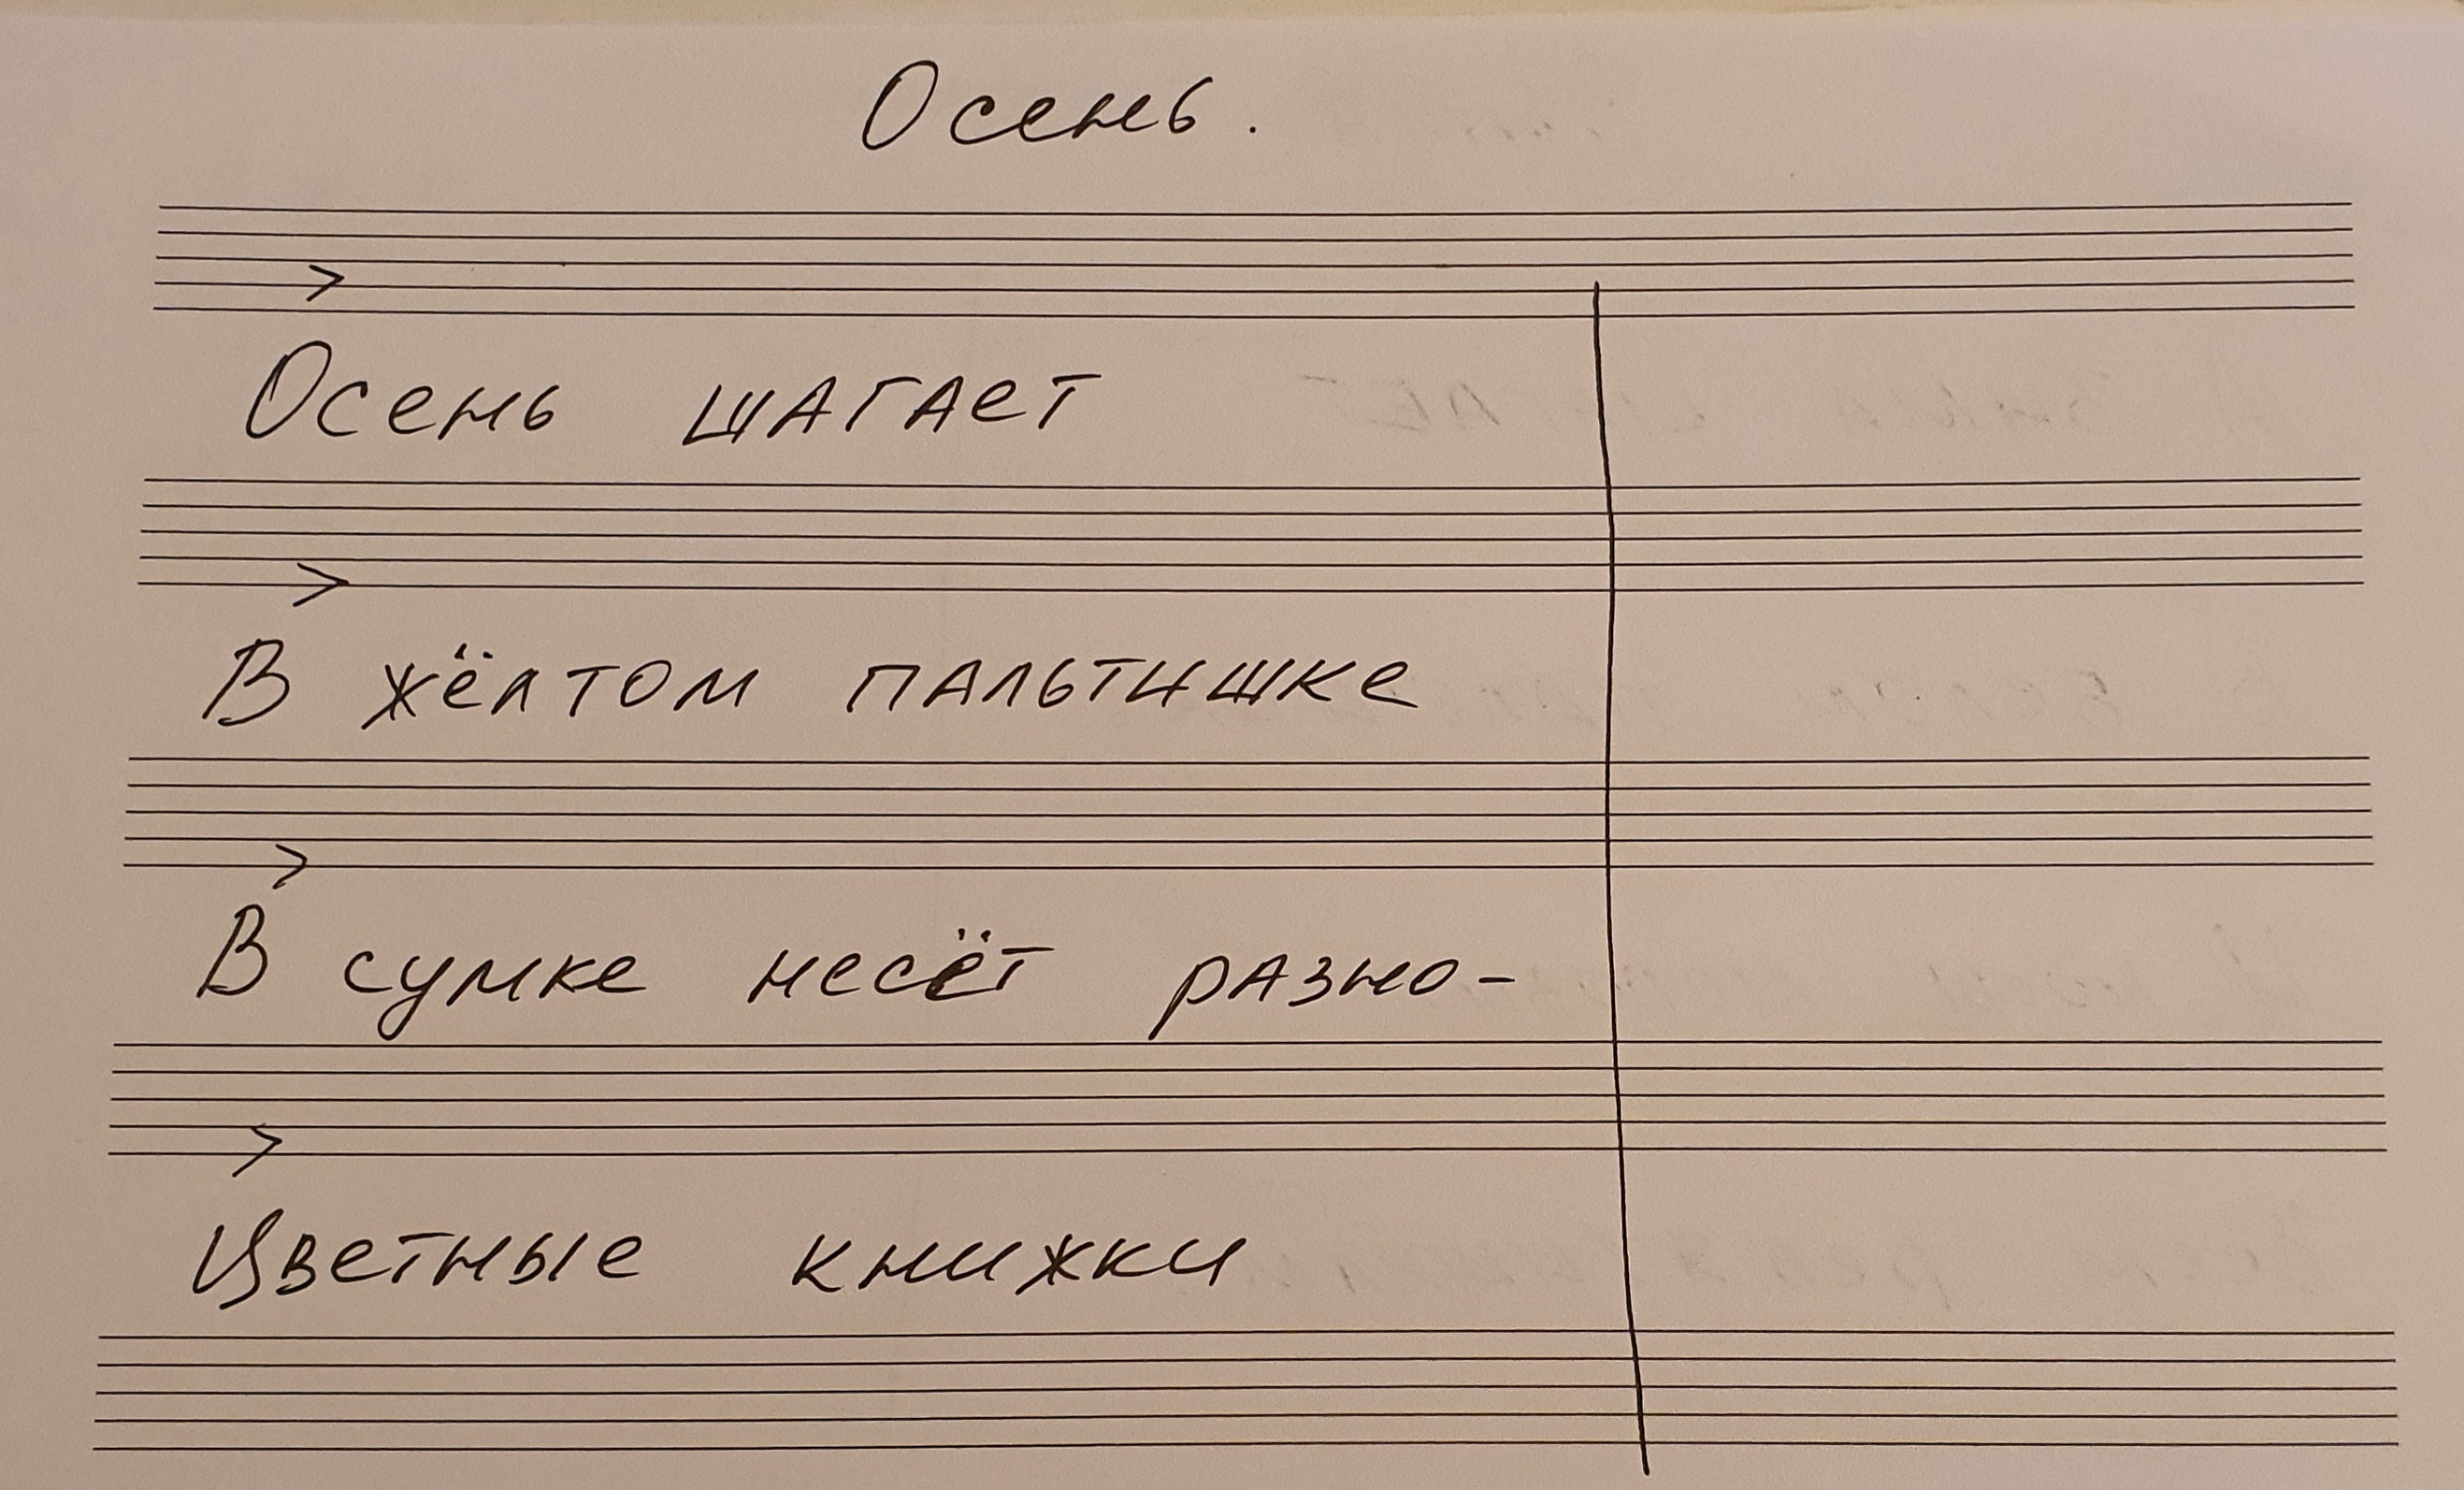 Осень.
Осень шагает
В жёлтом пальтишке
В сумке несёт разно-
Цветные книжки